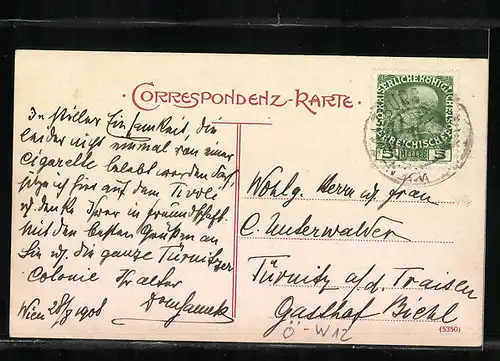 CORRESPONDENZ-KARTE.
In stiller Einsamkeit, die
leider nicht einmal von einer
Cigarette belebt werden darf,
sitze ich hier auf dem Tivoli
u. denke Ihrer in Freundschaft.
Mit den besten Grüßen an
Sie u. die ganze Türnitzer
Colonie Ihr alter
Wien 28/8 1908
KAISERLICHE KÖNIGLICHE
ÖSTERREICHISCHE POST
5 HELLER 5
Wohlg. Herrn u. Frau
C. Unterwalder
Türnitz a/d. Traisen
Gasthof Biehl
Ö - W12
(5350)